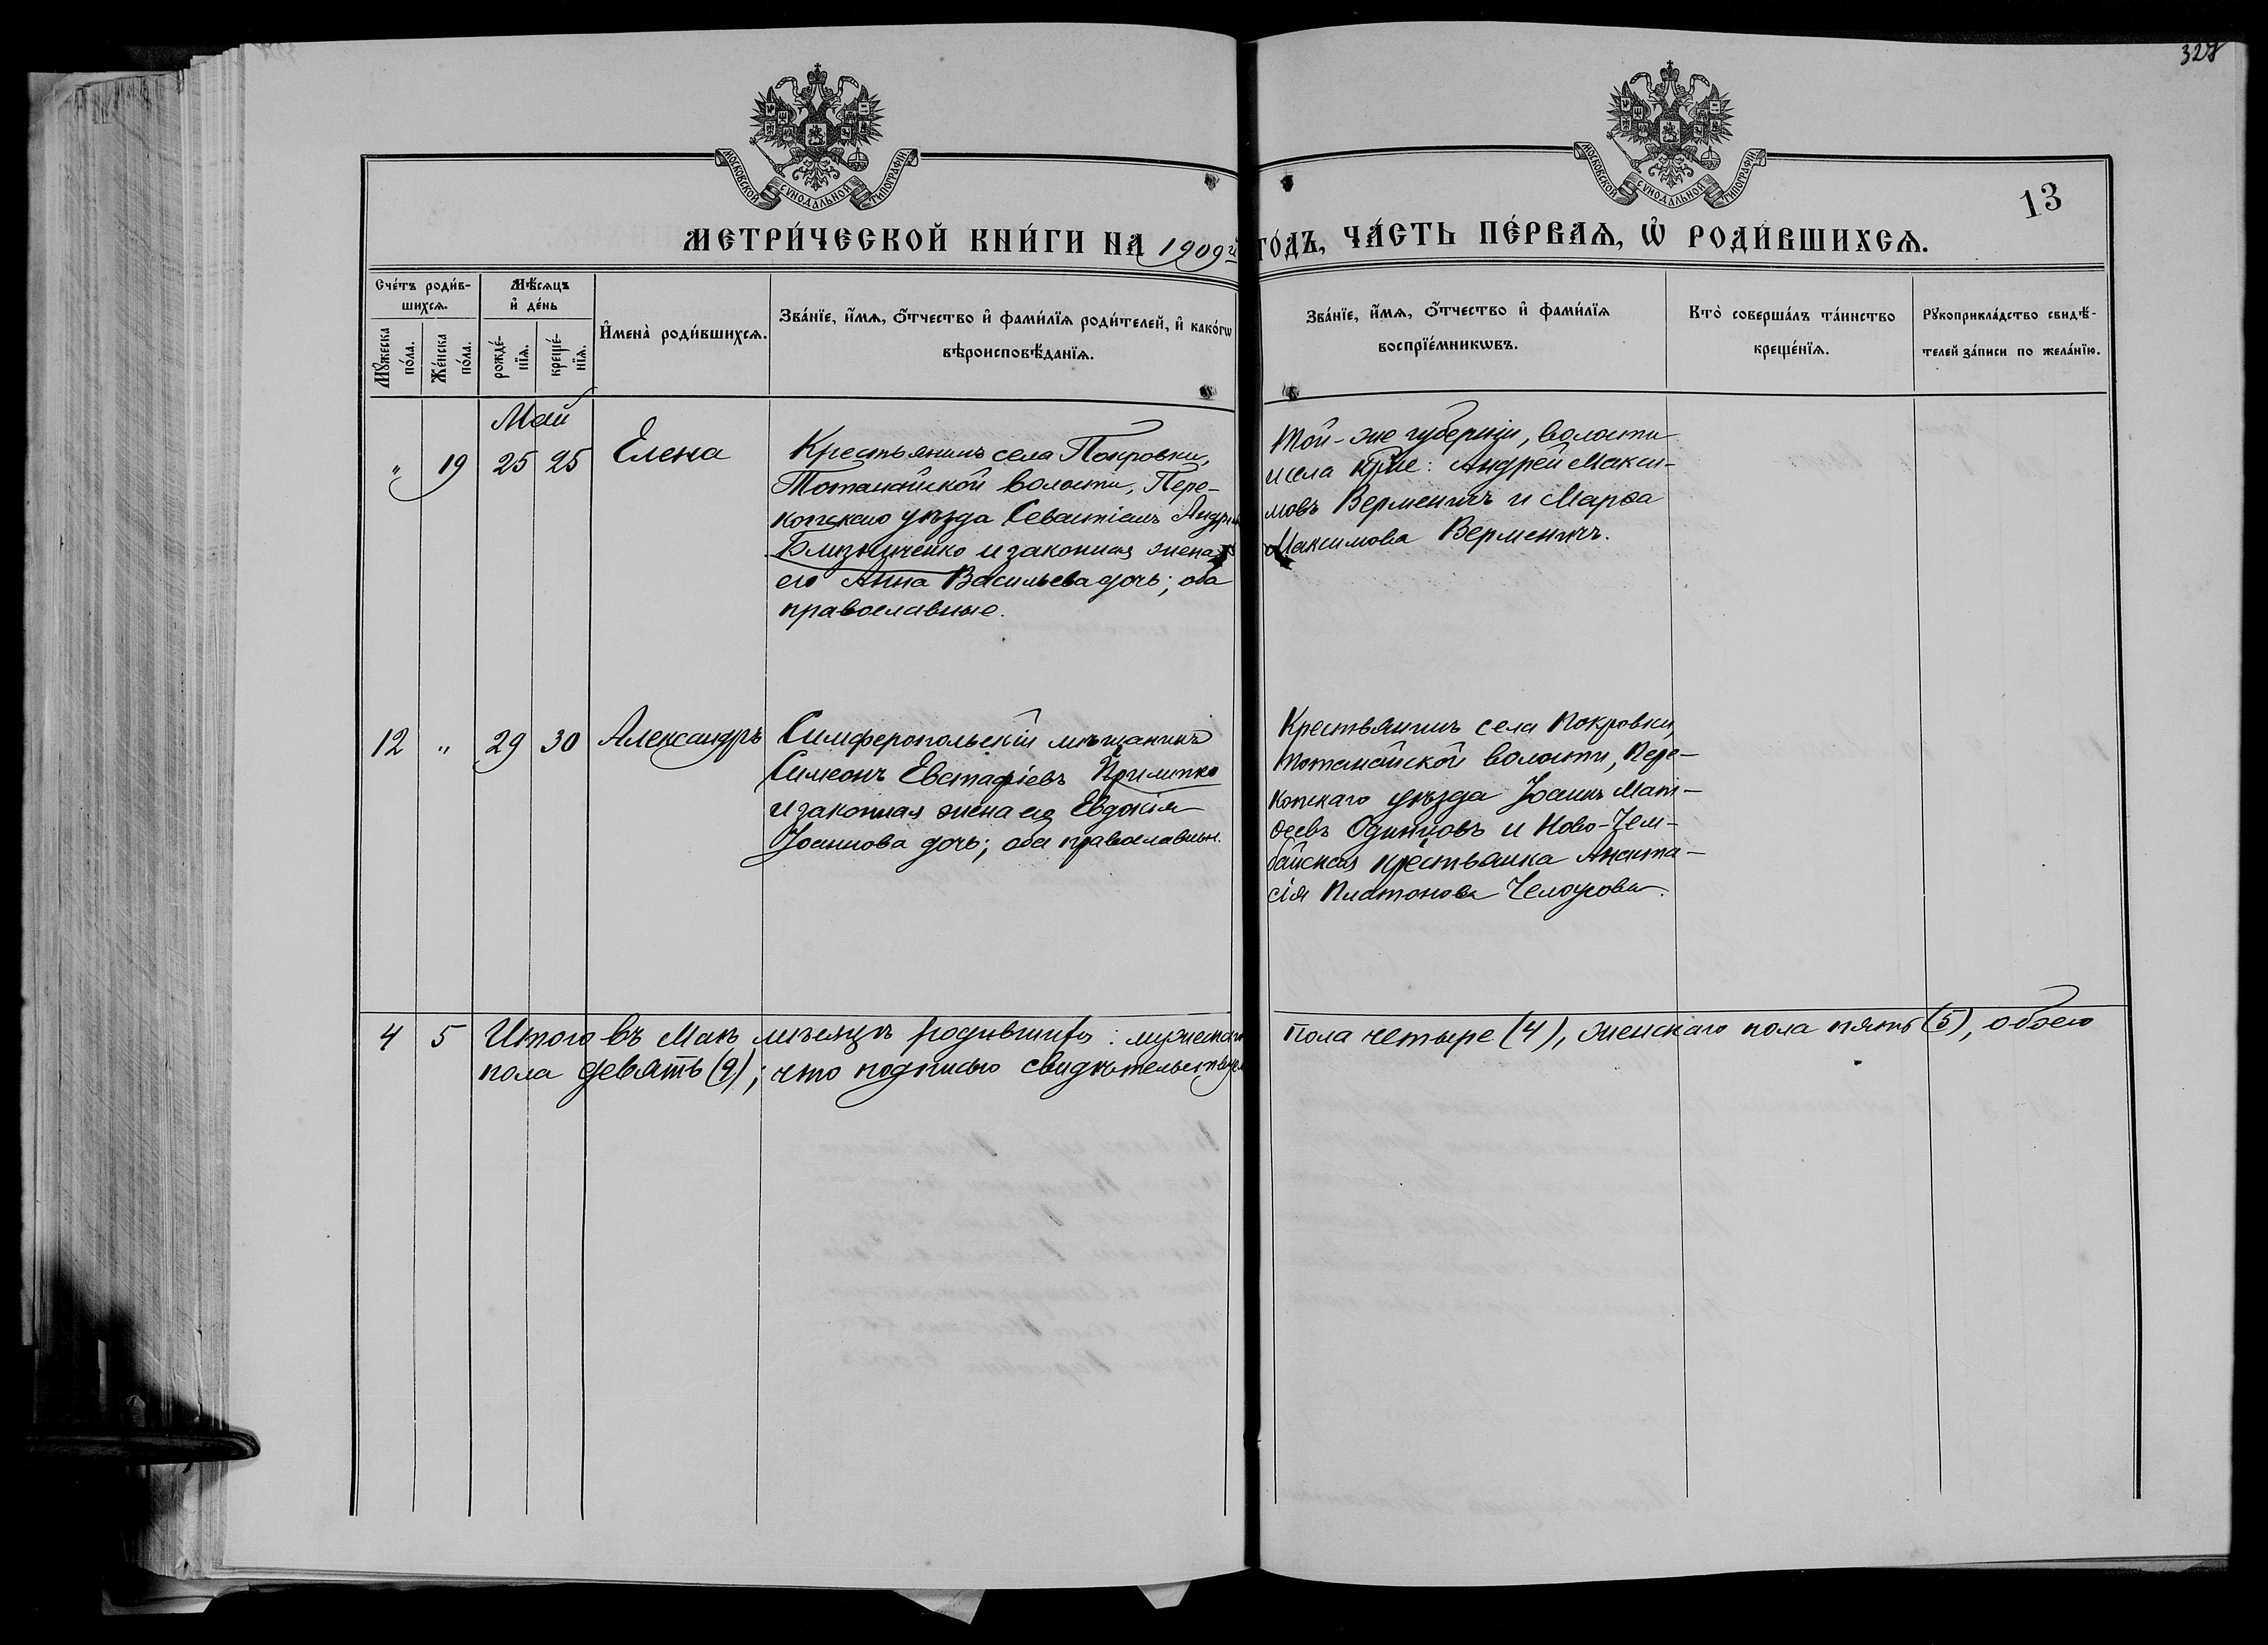 328
МОСКОВСКОЙ СѴНОДАЛЬНОЙ ТИПОГРАФІИ
МОСКОВСКОЙ СѴНОДАЛЬНОЙ ТИПОГРАФІИ
13
МЕТРИ́ЧЕСКОЙ КНИ́ГИ НА 1909й ГО́ДЪ, ЧА́СТЬ ПЕ́РВАѦ, Ѡ҆ РОДИ́ВШИХСѦ.
Сче́тъ роди́в-
шихсѧ.
Мꙋ́жеска
по́ла.
Же́нска
по́ла.
Мѣ́сѧцъ
и҆ де́нь
рожде́-
нїѧ.
креще́-
нїѧ.
И҆мена̀ роди́вшихсѧ.
Зва́нїе, и҆́мѧ, ѻ҆́тчество и҆ фами́лїѧ роди́телей, и҆ како́гѡ
вѣроисповѣ́данїѧ.
Зва́нїе, и҆́мѧ, ѻ҆́тчество и҆ фами́лїѧ
воспрїе́мникѡвъ.
Кто̀ соверша́лъ та́инство
креще́нїѧ.
Рꙋкоприкла́дство свидѣ́-
телей за́писи по жела́нїю.
Май
" 19 25 25 Елена
Крестьянинъ села Покровки,
Тотанайской волости, Пере-
копскаго уѣзда Севастіанъ Андреев
Близниченко и законная жена
его Анна Васильева дочь; оба
православные.
Той-же губерніи, волости
и села кр-не: Андрей Макси-
мовъ Верменичъ и Марѳа
Максимова Верменичъ.
12 " 29 30 Александръ
Симферопольскій мѣщанинъ
Симеонъ Евстафіевъ
и законная жена его Евдокія
Іоаннова дочь; оба православные.
Крестьянинъ села Покровки,
Тотанайской волости, Пере-
копскаго уѣзда Іоаннъ Мат-
ѳеевъ Одинцовъ и Ново-
крестьянка Анаста-
сія Платонова
4 5 Итого въ Маѣ мѣсяцѣ родившихся: мужескаго пола четыре (4), женскаго пола пять (5), обоего
пола девять (9); что подписью свидѣтельствуемъ